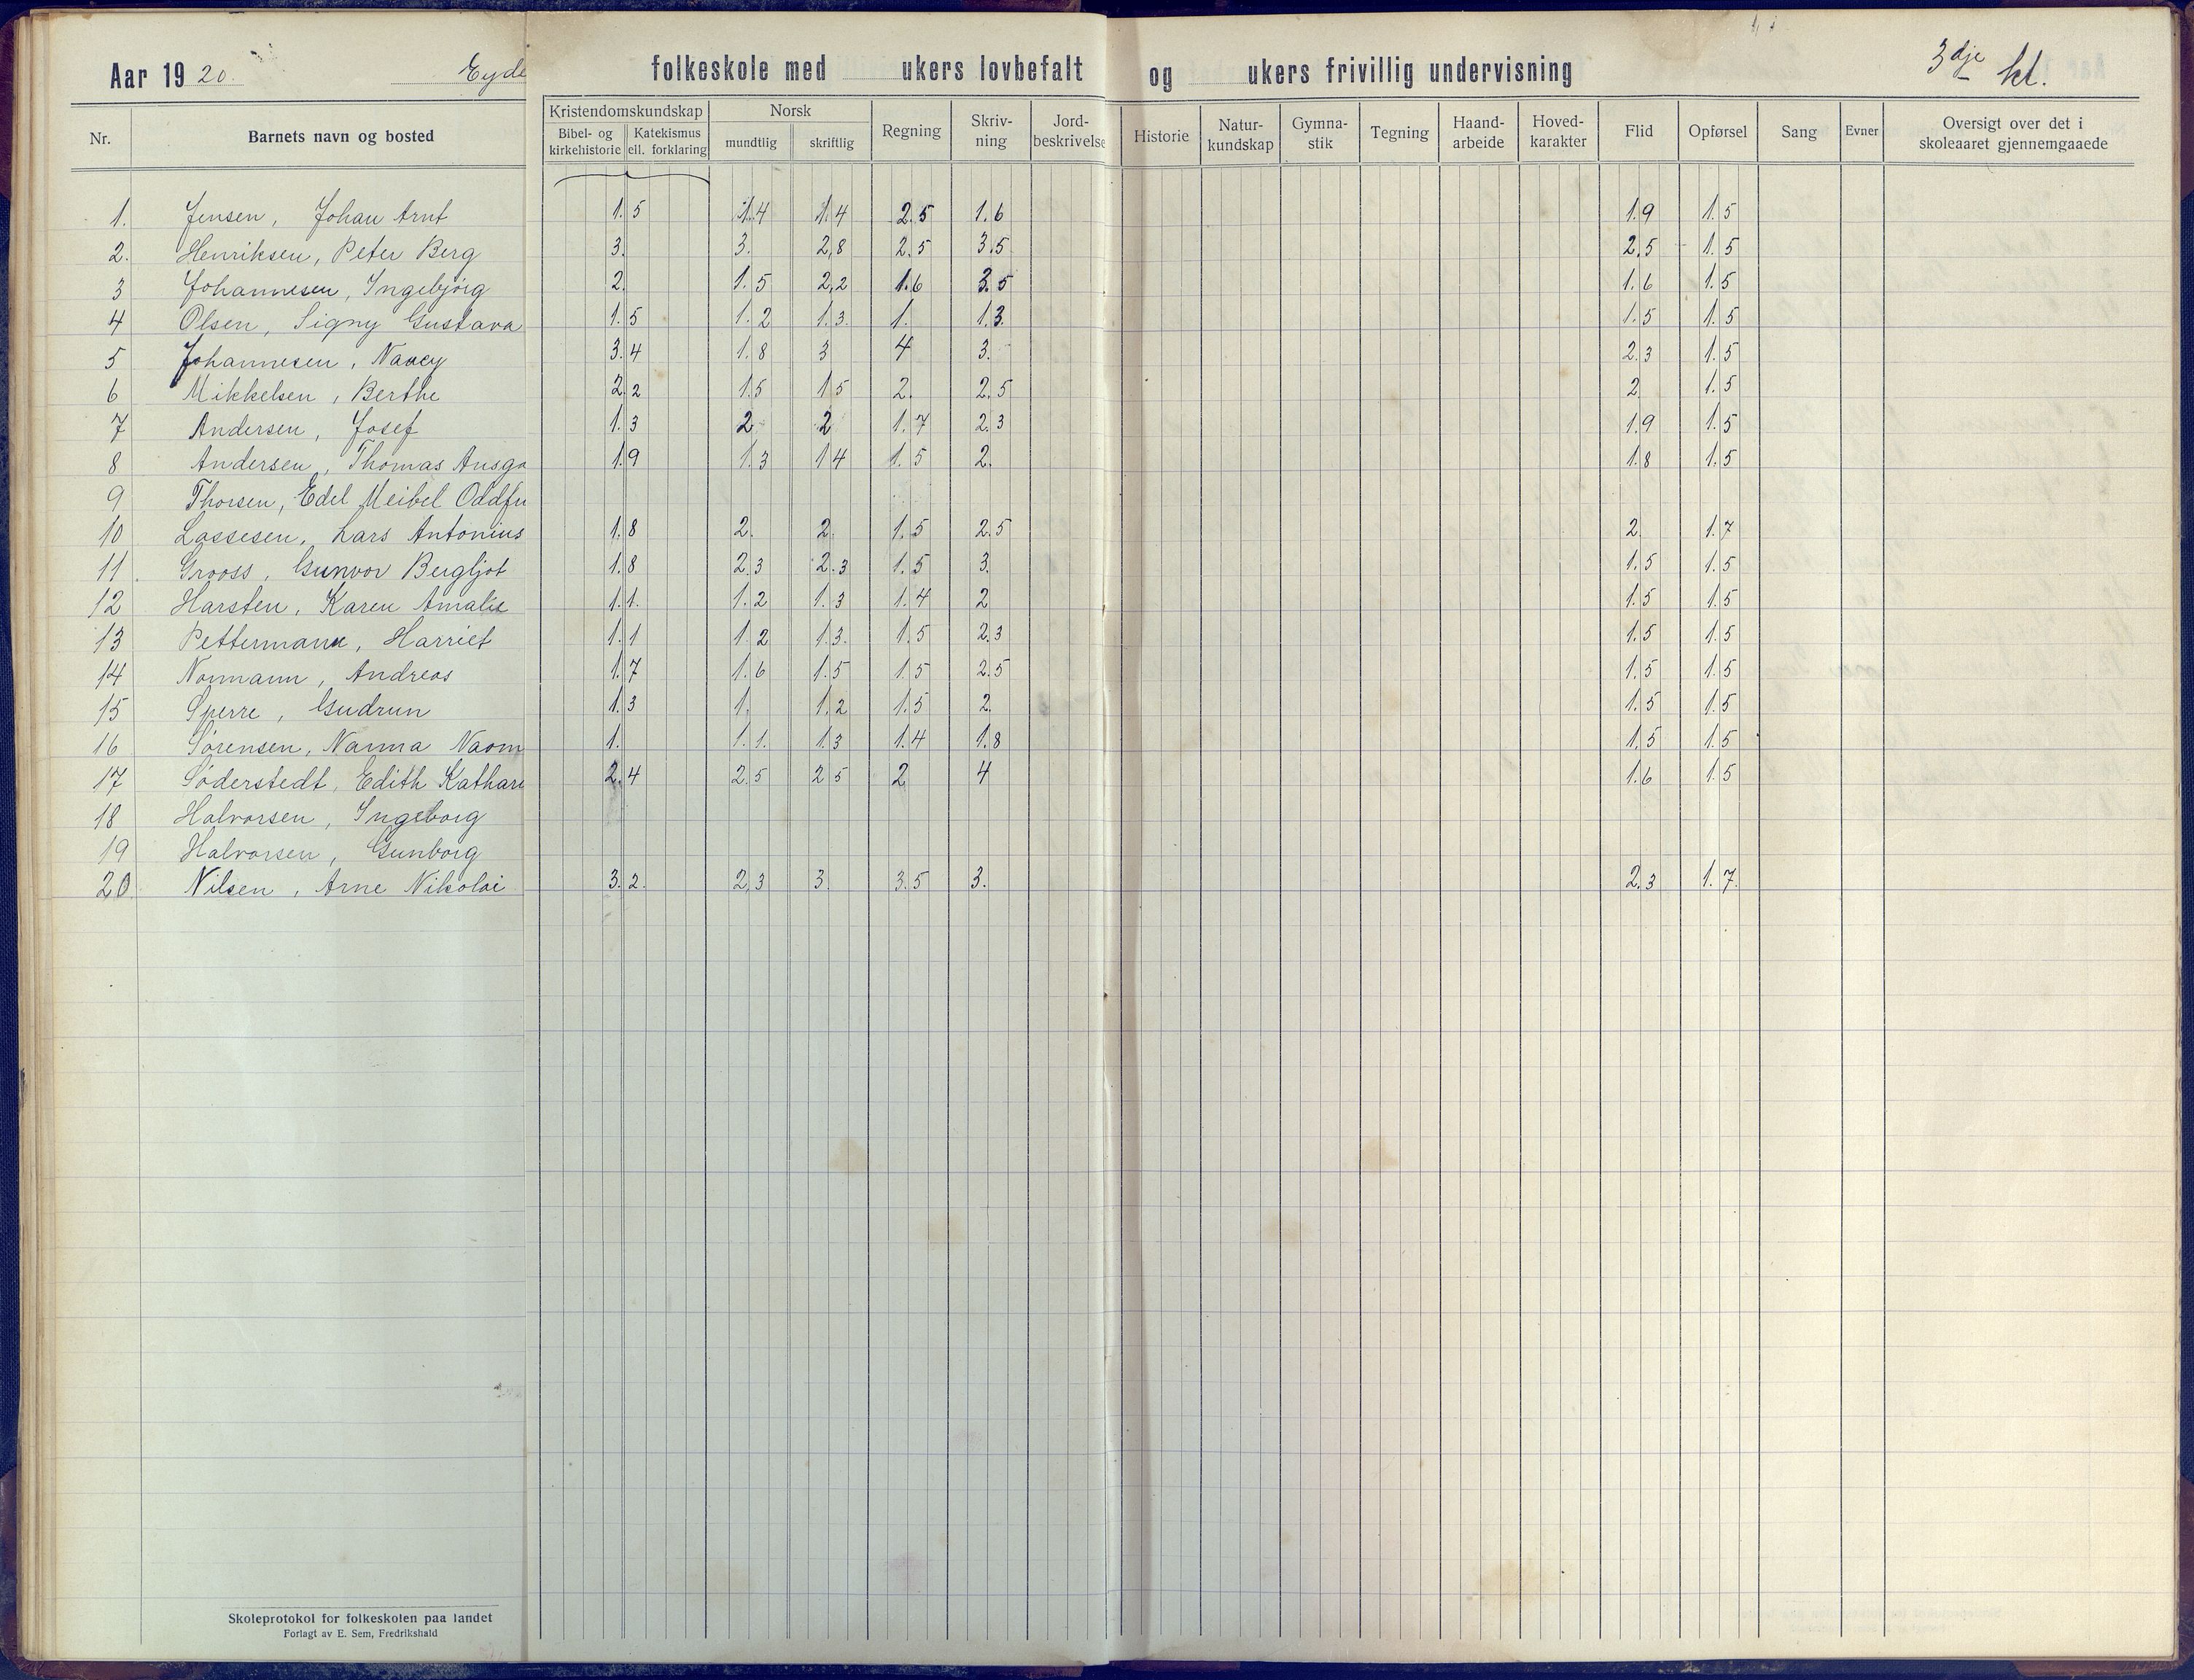 Aar 19 20. Eyde folkeskole med ukers lovbefalt og ukers frivillig undervisning 3dje kl.
Nr. Barnets navn og bosted Kristendomskundskap Bibel- og kirkehistorie Katekismus ell. forklaring Norsk mundtlig skriftlig Regning Skriv-ning Jord-beskrivelse Historie Natur-kundskap Gymna-stik Tegning Haand-arbeide Hoved-karakter Flid Opførsel Sang Evner Oversigt over det i skoleaaret gjennemgaaede
1. Jensen, Johan Arnt 1.5 1.4 1.4 2.5 1.6 1.9 1.5
2. Henriksen, Peter Berg 3. 3. 2,8 2.5 3.5 2.5 1.5
3 Johannesen, Ingebjörg 2. 1.5 2,2 1.6 3.5 1.6 1.5
4 Olsen, Signy Gustava 1.5 1.2 1.3. 1. 1.3. 1.5 1.5
5 Johannesen, Nancy 3.4 1.8 3 4 3. 2.3 1.5
6 Mikkelsen, Berthe 2.2 1.5 1.5 2. 2.5 2 1.5
7 Andersen, Josef 1.3 2 2 1.7 2.3 1.9 1.5
8 Andersen, Thomas Ansga 1.9 1.3 1.4 1.5 2. 1.8 1.5
9 Thorsen, Edel Meibel Oddfr
10 Lassesen, Lars Antonius 1.8 2. 2. 1.5 2.5 2 1.7
11. Grooss, Gunvor Bergljot 1.8 2.3 2.3 1.5 3. 1.5 1.5
12 Harsten, Karen Amalie 1.1. 1.2 1.3 1.4 2 1.5 1.5
13 Pettermann, Harriet 1.1 1.2 1.3. 1.5 2.3 1.5 1.5
14 Normann, Andreas 1.7 1.6 1.5 1.5 2.5 1.5 1.5
15 Sperre, Gudrun 1.3 1. 1.2 1.5 2. 1.5 1.5
16 Sørensen, Nanna Naom 1. 1.1. 1.3 1.4 1.8 1.5 1.5
17 Söderstedt, Edith Kathari 2.4 2.5 2 5 2 4 1.6 1.5
18 Halvorsen, Ingeborg
19 Halvorsen, Gunborg
20. Nilsen, Arne Nikolai 3.2. 2,3 3. 3.5 3. 2.3 1.7.
Skoleprotokol for folkeskolen paa landet
Forlagt av E. Sem, Fredrikshald